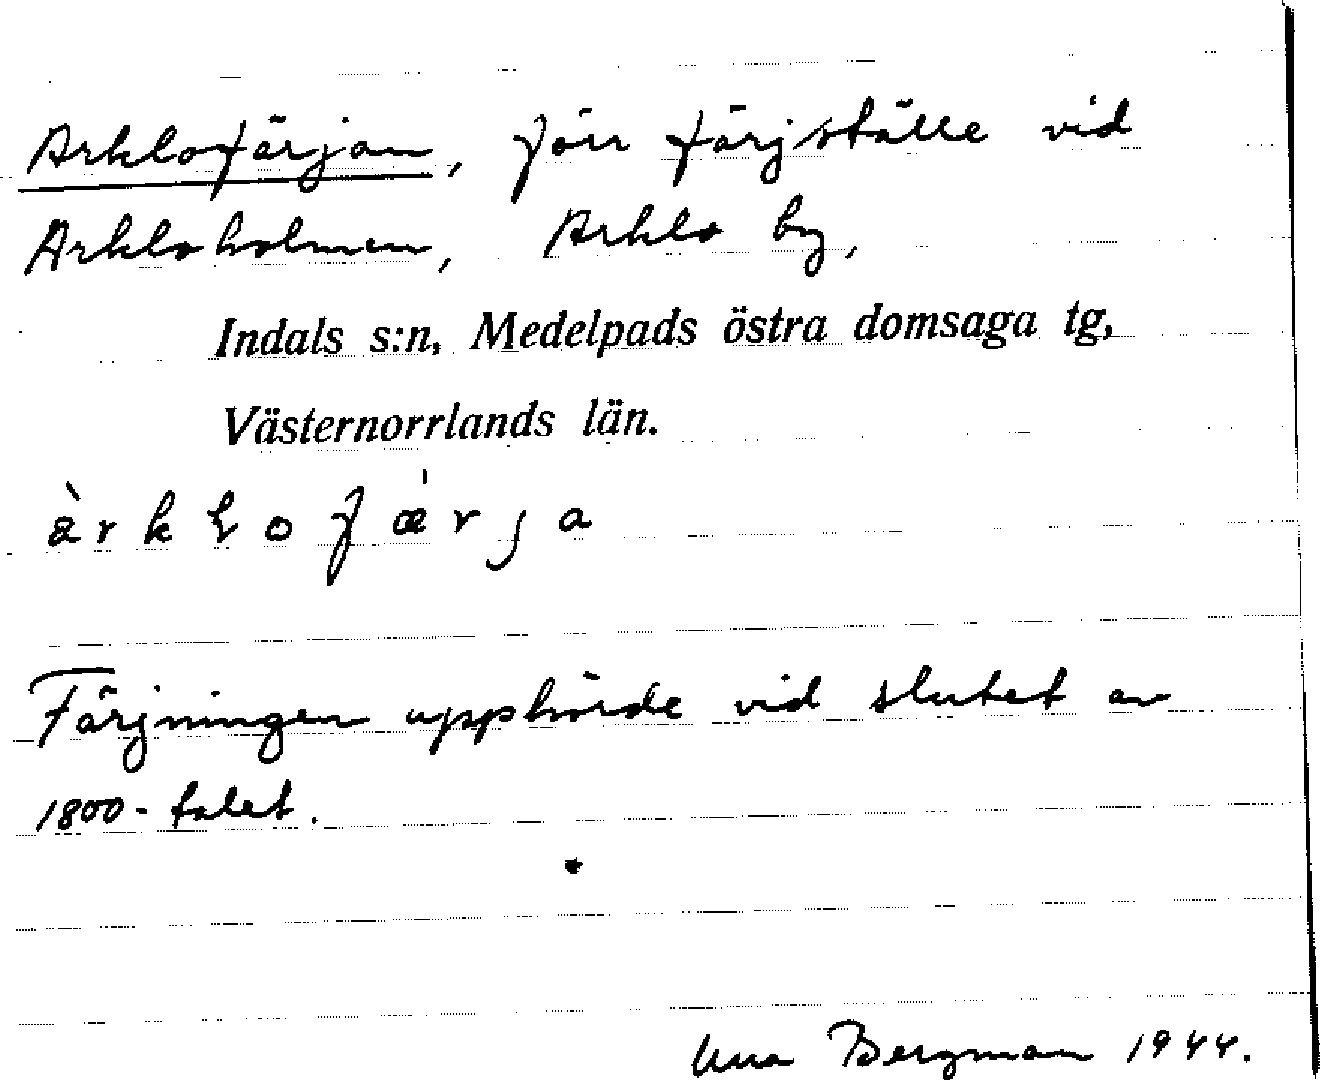 Arklofärjan, förr färjställe vid
Arkloholmen, Arklo by,
Indals s:n, Medelpads östra domsaga tg,
Västernorrlands län.
àrkłofǽrja
Färjningen upphörde vid slutet av
1800-talet.
Una Bergman 1944.